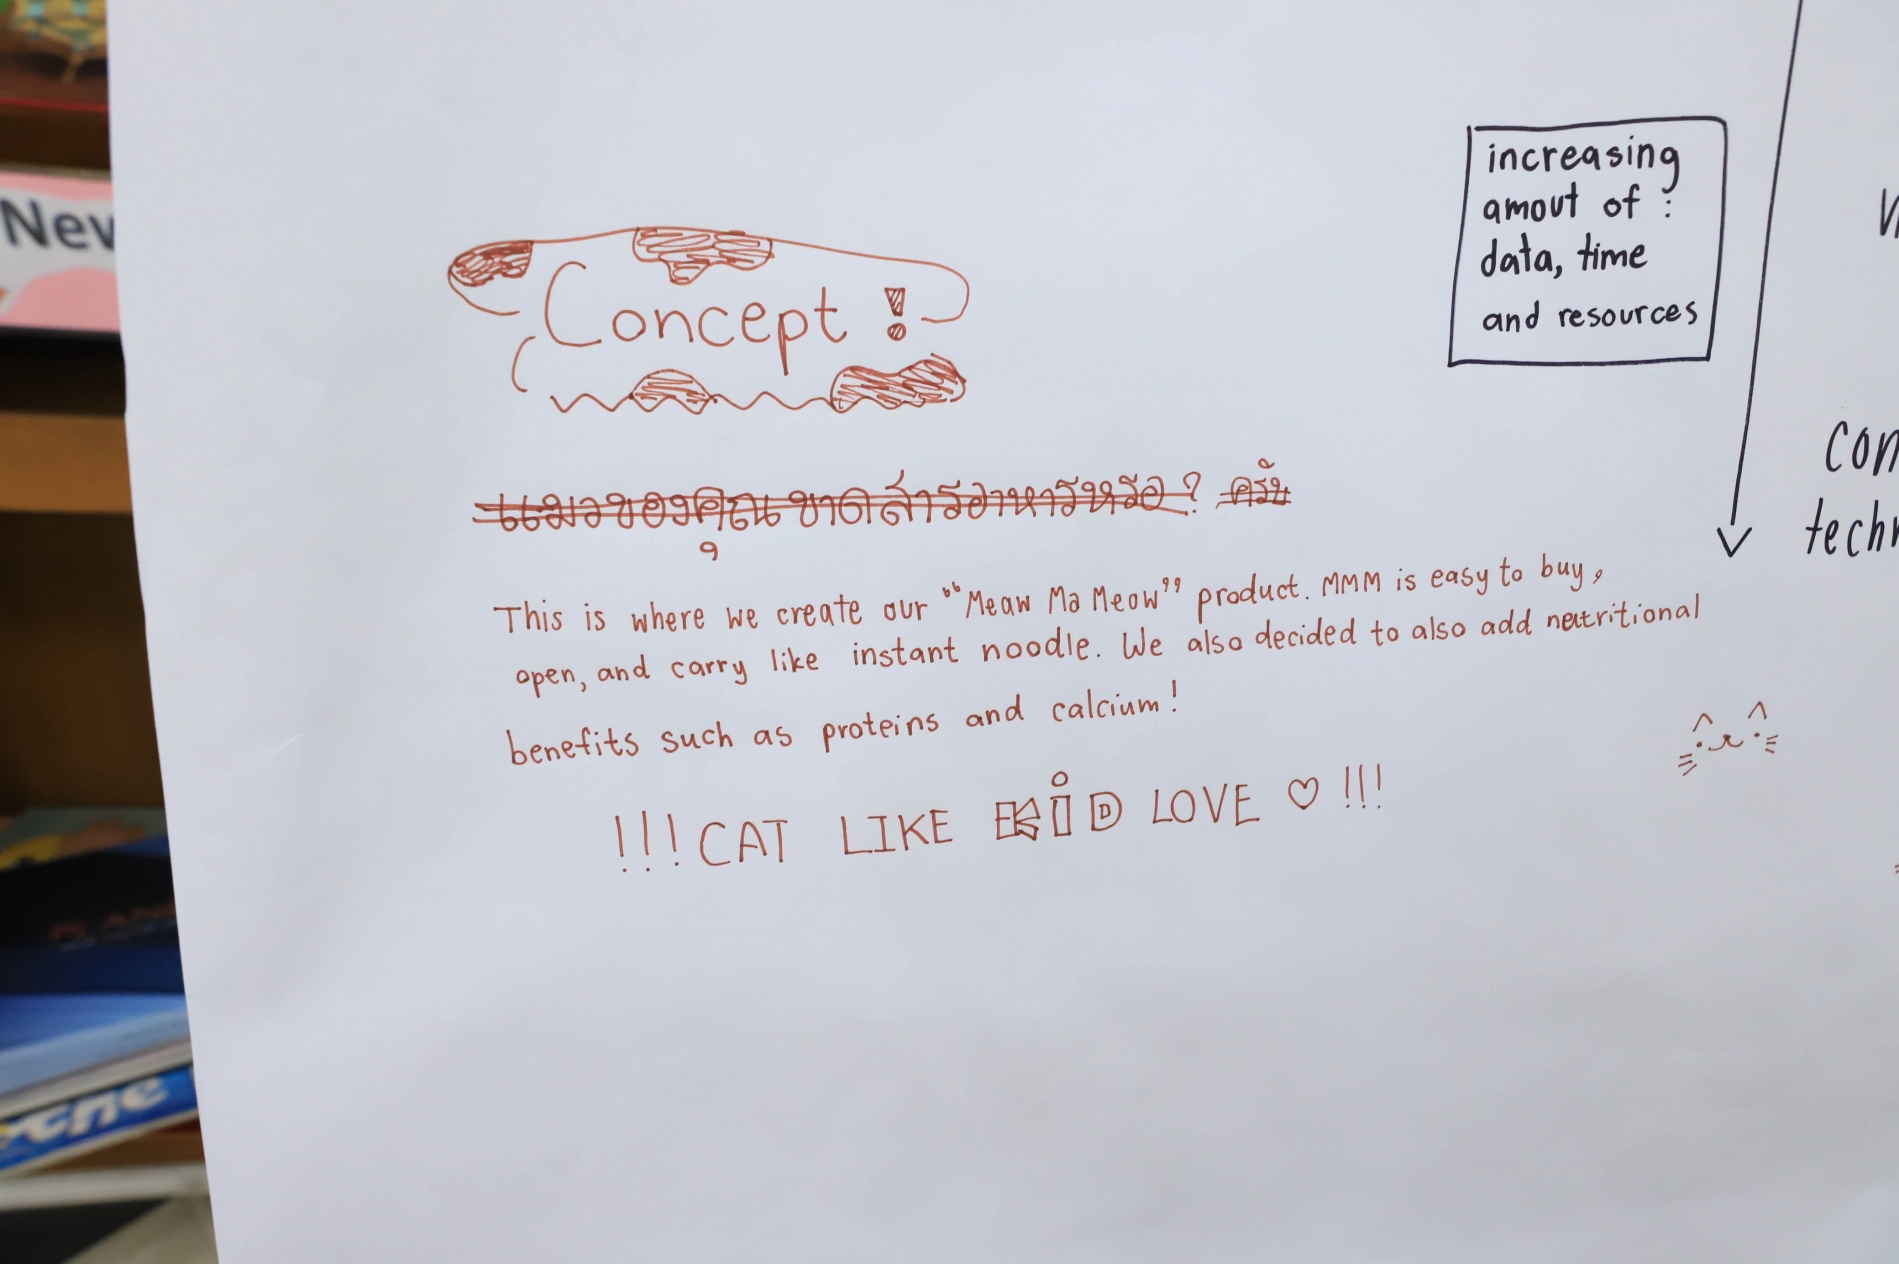 New
Concept !
แมวของคุณขาดสารอาหารหรือ? ครับ
This is where we create our "Meaw Ma Meow" product. MMM is easy to buy,
open, and carry like instant noodle. We also decided to also add neutritional
benefits such as proteins and calcium!
!!! CAT LIKE KID LOVE ♡ !!!
increasing
amout of :
data, time
and resources